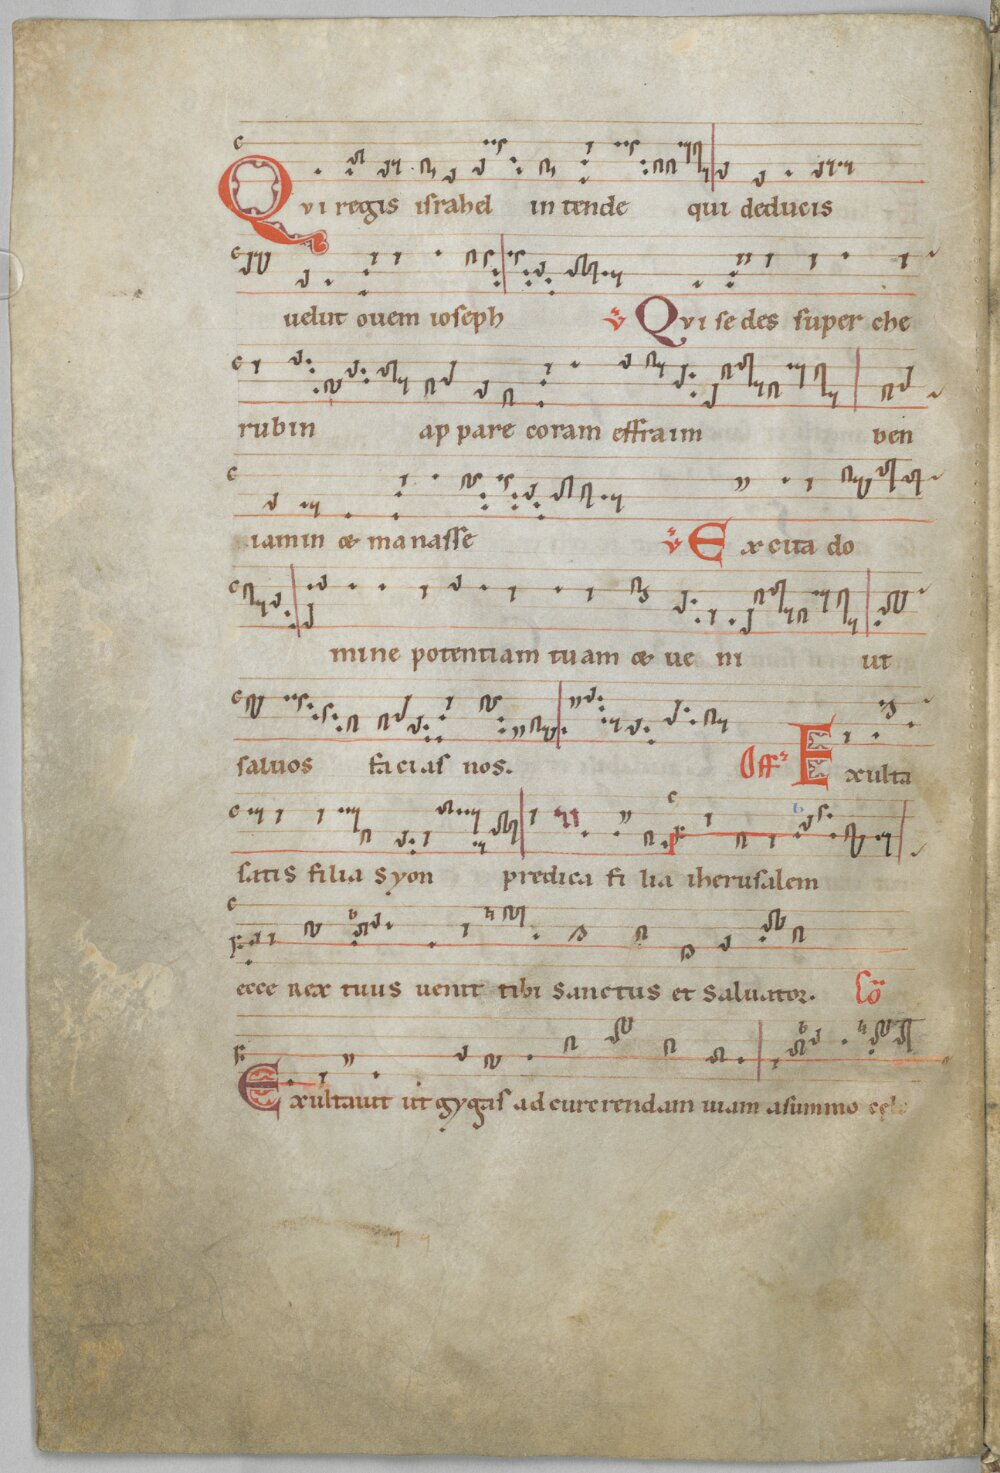 Qvi regis israhel in tende qui deducis
uelut ouem ioseph ℣ Qvi se des super che
rubin ap pare coram effraim ben
iamin & ma nasse ℣ Excita do
mine potentiam tuam & ue ni ut
saluos facias nos. Off Exulta
satis filia syon predica fi lia iherusalem
ecce Rex tuus uenit tibi sanctus et saluator. Co
Exultauit ut gygas ad currendam uiam asummo celo